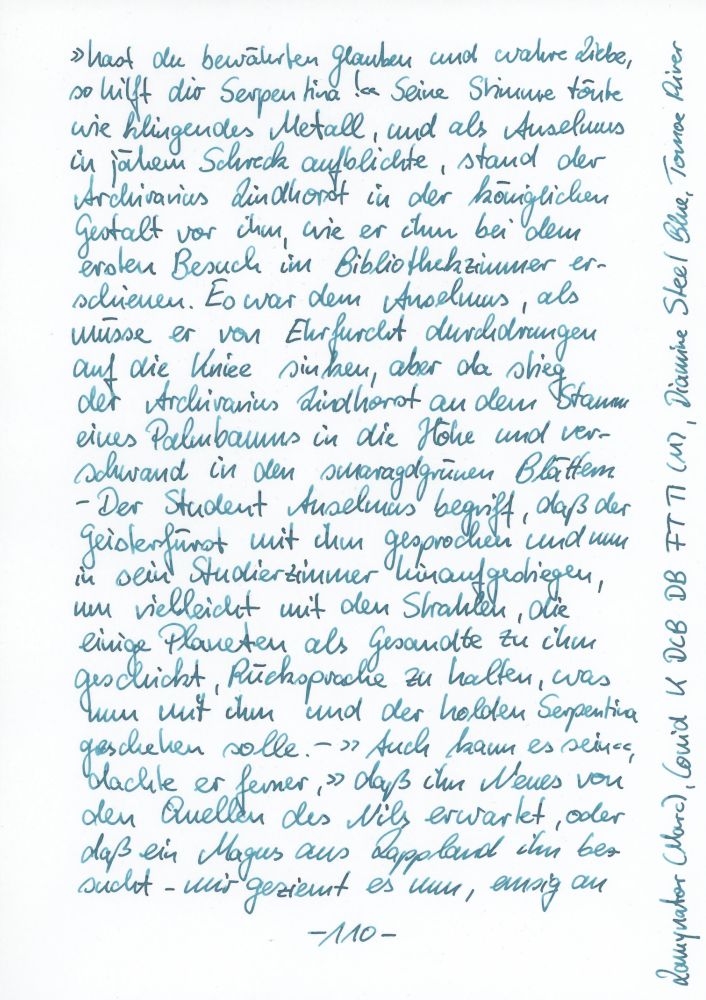 »hast du bewährten Glauben und wahre Liebe,
so hilft dir Serpentina!« Seine Stimme tönte
wie klingendes Metall, und als Anselmus
in jähem Schreck aufblickte, stand der
Archivarius Lindhorst in der königlichen
Gestalt vor ihm, wie er ihm bei dem
ersten Besuch im Bibliothekzimmer er-
schienen. Es war dem Anselmus, als
müsse er von Ehrfurcht durchdrungen
auf die Kniee sinken, aber da stieg
der Archivarius Lindhorst an dem Stamm
eines Palmbaums in die Höhe und ver-
schwand in den smaragdgrünen Blättern
- Der Student Anselmus begriff, daß der
Geisterfürst mit ihm gesprochen und nun
in sein Studierzimmer hinaufgestiegen,
um vielleicht mit den Strahlen, die
einige Planeten als Gesandte zu ihm
geschickt, Rücksprache zu halten, was
nun mit ihm und der holden Serpentina
geschehen solle. - »Auch kann es sein«,
dachte er ferner, »daß ihn Neues von
den Quellen des Nils erwartet, oder
daß ein Magus aus Lappland ihn be-
sucht - mir geziemt es nun, emsig an
-110-
Lamynator (Marc), Conid K DCB DB FT TI (M), Diamine Steel Blue, Tomoe River